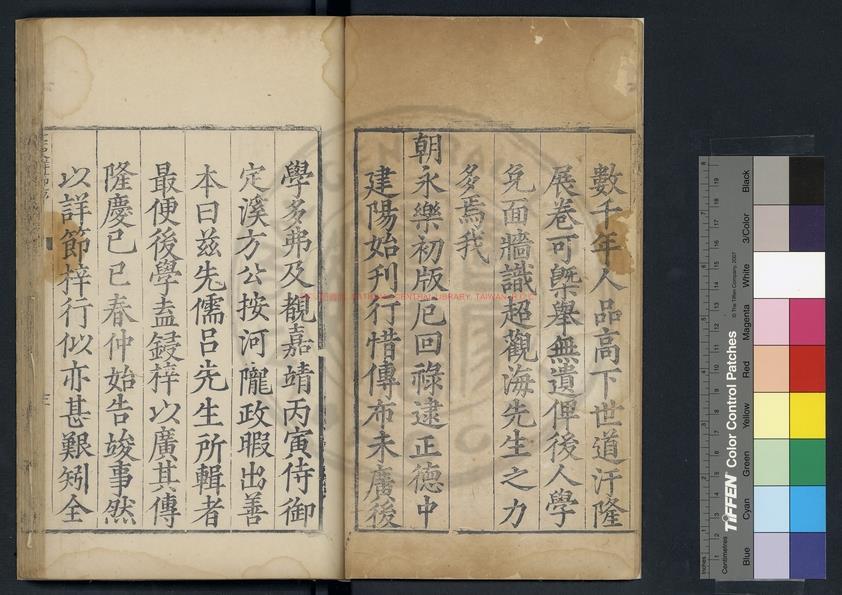 數千年人品高下世道汙隆
展卷可槩舉無遺俾後人學
免面牆識超觀海先生之力
多焉我
朝永樂初版厄回祿逮正德中
建陽始刊行惜傳布未廣後
學多弗及覩嘉靖丙寅侍御
定溪方公按河隴政暇出善
本曰茲先儒呂先生所輯者
最便後學盍鋟梓以廣其傳
隆慶己巳春仲始告竣事然
以詳節梓行似亦甚艱矧全
NATIONAL CENTRAL LIBRARY, TAIWAN, R.O.C
TIFFEN Color Control Patches
© The Tiffen Company, 2007
Centimetres
Inches
Blue
Cyan
Green
Yellow
Red
Magenta
White
3/Color
Black